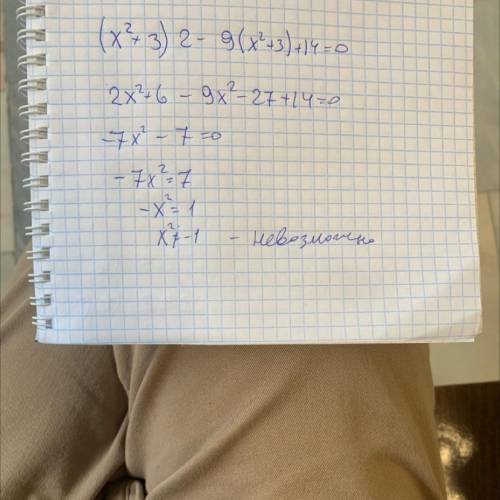 (x²+3) 2 - 9(x²+3)+14=0
2x²+6 - 9x²-27+14=0
-7x² - 7 =0
-7x²=7
-x²=1
x²=-1 - невозможно